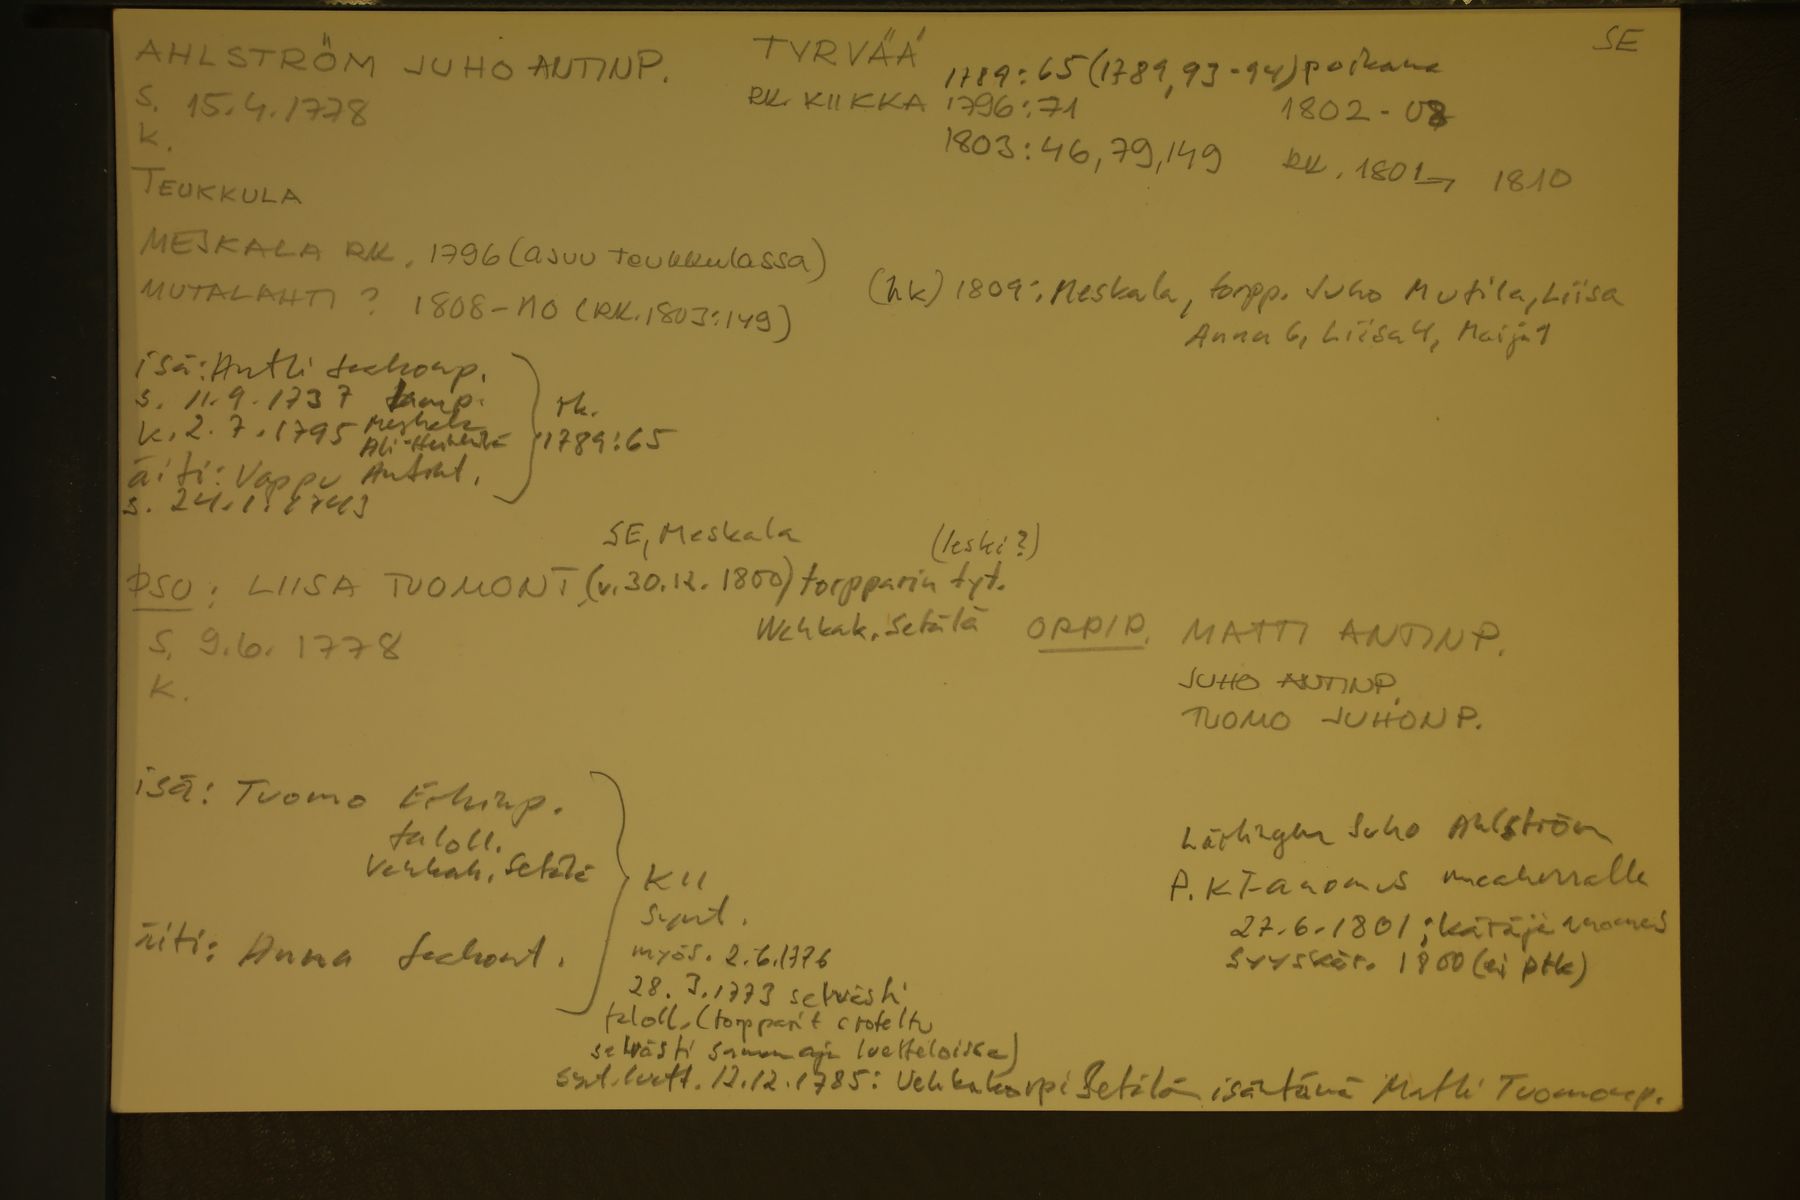 AHLSTRÖM JUHO ANTINP.
TYRVÄÄ
SE
1789:65 (1789,93-94) poikana
S. 15.4.1778
RK. KIIKKA 1796:71
1802-08
K.
1803:46,79,149
RK. 1801→ 1810
TEUKKULA
MESKALA RK. 1796 (asuu Teukkulassa)
MUTALAHTI? 1808-10 (RK.1803:149)
(hk) 1809: Meskala, torpp. Juho Mutila, Liisa
Anna 6, Liisa 4, Maija 1
isä: Antti Jaakonp.
s. 11.9.1737 lamp.
k. 2.7.1795 Meskala
Ali-
rk.
1789:65
äiti: Vappu Antint.
s. 24.1.1743
SE, Meskala
(leski?)
PSO: LIISA TUOMONT (v.30.12.1800) torpparin tyt.
Vehkak. Setälä
S. 9.6.1778
K.
OPPIP. MATTI ANTINP.
JUHO ANTINP.
TUOMO JUHONP.
isä: Tuomo Erkinp.
taloll.
Vehkak. Setälä
äiti: Anna Jaakont.
KII
synt.
myös. 2.6.1776
28.3.1773 selvästi
taloll. (torpparit eroteltu
selvästi saman ajan luetteloissa)
synt.luett. 12.12.1785: Vehkakorpi Setälä isäntänä Matti Tuomonp.
Lärlingen Juho Ahlström
P.KT-anomus maaherralle
27.6.1801; käräjä
syyskär. 1800 (ei ptk)